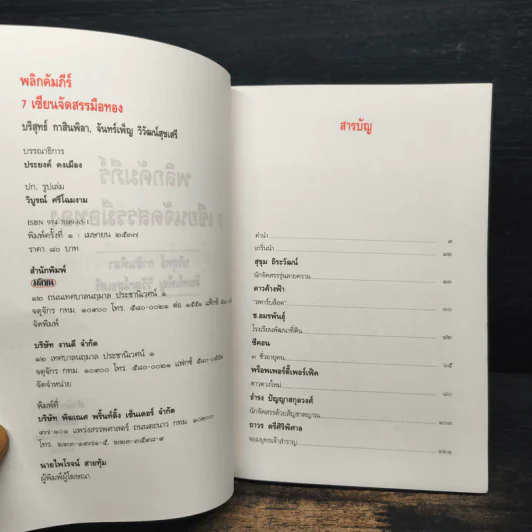 พลิกคัมภีร์
7 เซียนจัดสรรมือทอง
บริสุทธ์ กาสินพิลา, จันทร์เพ็ญ วิวัฒน์สุขเสรี
บรรณาธิการ
ประยงค์ คงเมือง
ปก, รูปเล่ม
วิบูรณ์ ศรีโฉมงาม
ISBN 974-7049-65-1
พิมพ์ครั้งที่ ๑ : เมษายน ๒๕๓๗
ราคา ๘๐ บาท
สำนักพิมพ์
มติชน
๑๒ ถนนเทศบาลนฤมาล ประชานิเวศน์ ๑
จตุจักร กทม. ๑๐๙๐๐ โทร. ๕๘๐-๐๐๒๑ ต่อ
จัดพิมพ์
บริษัท งานดี จำกัด
๑๒ เทศบาลนฤมาล ประชานิเวศน์ ๑
จตุจักร กทม. ๑๐๙๐๐ โทร. ๕๘๐-๐๐๒๑ แฟกซ์
จัดจำหน่าย
พิมพ์ที่
บริษัท พิฆเณศ พริ้นท์ติ้ง เซ็นเตอร์ จำกัด
๙๗-๑๐๑ แพร่งสรรพศาสตร์ ถนนตะนาว กทม. ๑๐๒๐๐
โทร.
นายไพโรจน์ สายทุ้ม
ผู้พิมพ์ผู้โฆษณา
สารบัญ
คำนำ
เกริ่นนำ ๑๒
สุขุม ถิระวัฒน์
นักจัดสรรรุ่นลายคราม
ดาวค้างฟ้า
"ลดารัมย์
ช.อมรพันธุ์
โรงเรียนพัฒนาที่ดิน
ซีคอน
๓ ชั่วอายุคน ๖๕
พร็อพเพอร์ตี้เพอร์เฟ็ค
ดาวดวงใหม่ ๘๐
ธำรง ปัญญาสกุลวงศ์
นักจัดสรรด้วยสัญชาตญาณ ๑๐๓
ถาวร ตรีศิริพิศาล
จอมยุทธเจ้าสำราญ ๑๒๑